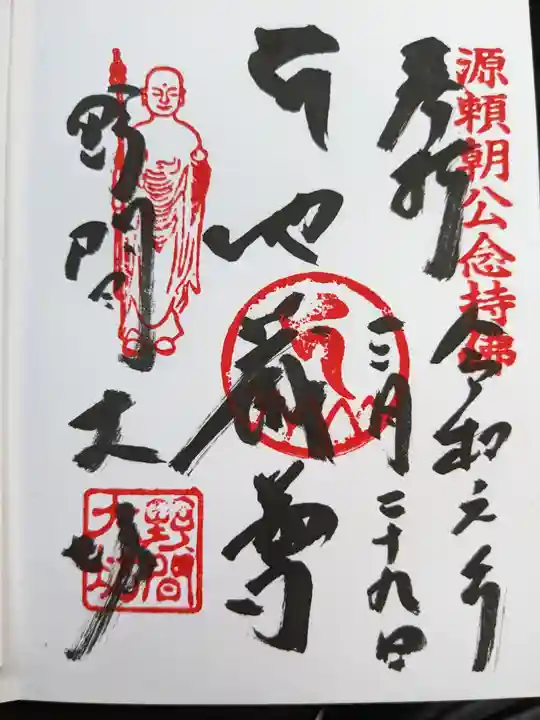 源頼朝公念持佛
奉拝
令和元年
一二月二十九日
地蔵尊
野間大坊
野間
大坊